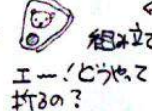 組み立て
エー!どうやって
折るの?